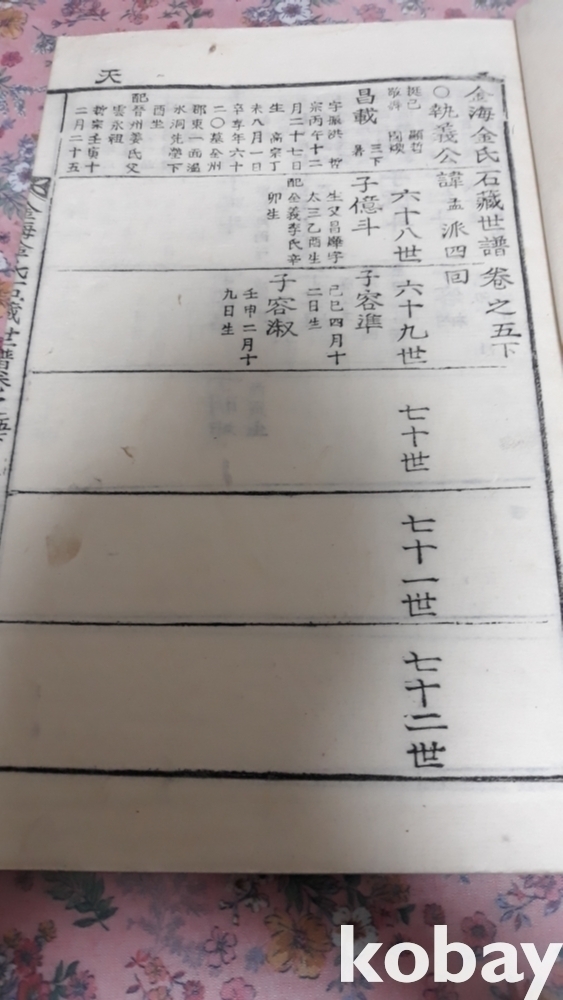 天
金海金氏石藏世譜 卷之五下
○執義公諱孟派四回
挺己 顯哲
三下
昌載
字振洪 哲
宗丙午十二
月二十七日
生 高宗丁
未八月一日
卒享年六十
二〇墓全州
郡東一面溫
水洞先塋下
酉坐
配晉州姜氏父
雲永祖
哲宗壬寅十
二月二十五
六十八世
子億斗
生父昌曄字
太三乙酉生
配全義李氏辛
卯生
六十九世
子容準
己巳四月十
二日生
子容淑
壬申二月十
九日生
七十世
七十一世
七十二世
金海金氏石藏世譜卷之五
kobay